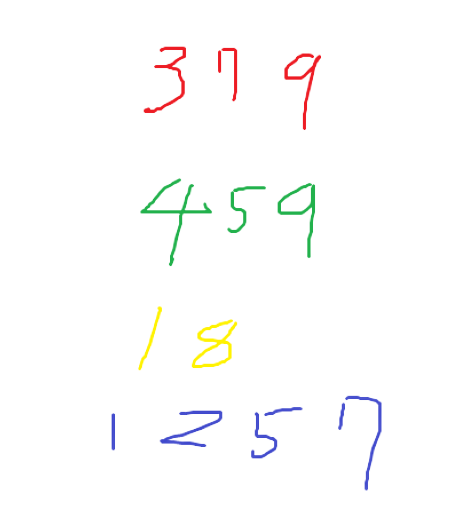 3 7 9
4 5 9
1 8
1 2 5 7